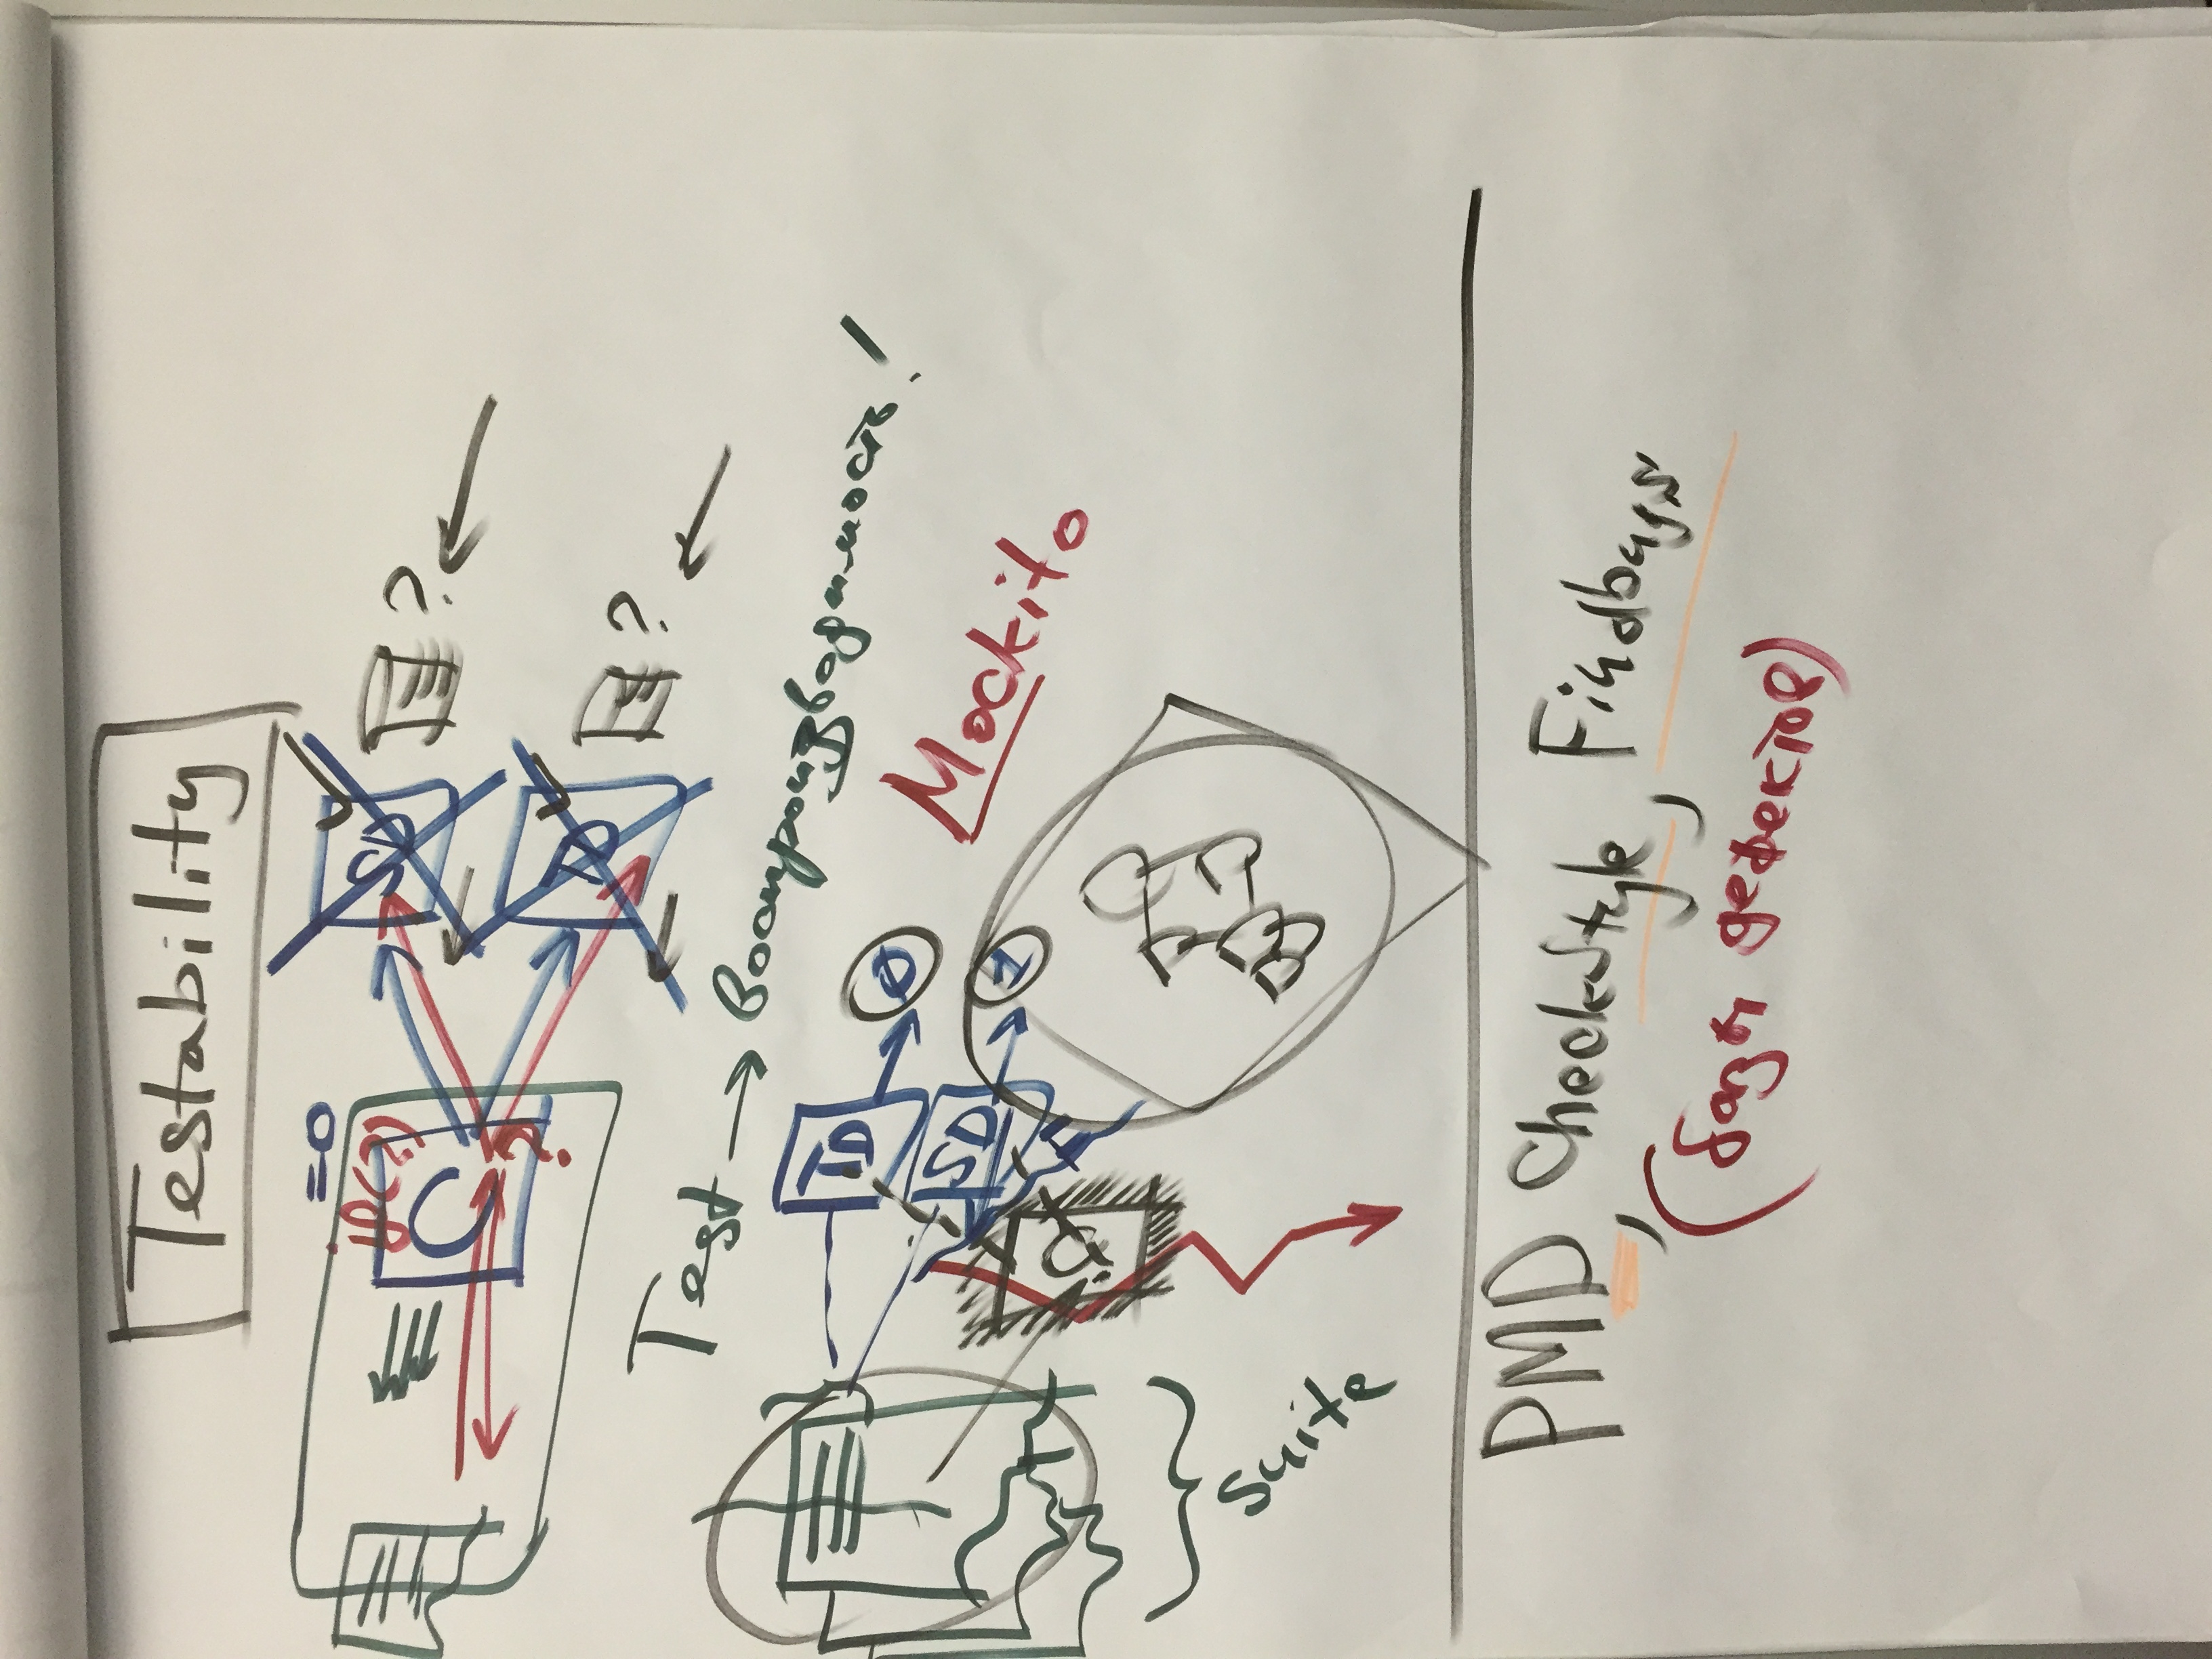 Testability
=0
if(?)
C
SD
?
?
TD
?
Test → Воспроизводимость!
TD
0
SD
1
Mockito
Suite
PMD, CheckStyle, Findbugs
(база дефектов)